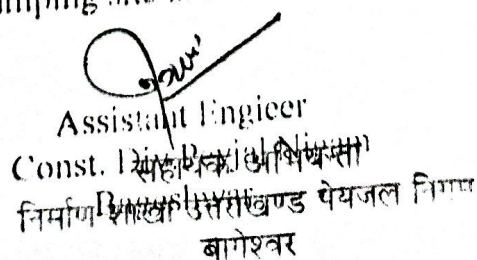 Assistant Engieer
Const. Div. Peyjal Nigam
सहायक अभियन्ता
Bageshwar
निर्माण शाखा उत्तराखण्ड पेयजल निगम
बागेश्वर